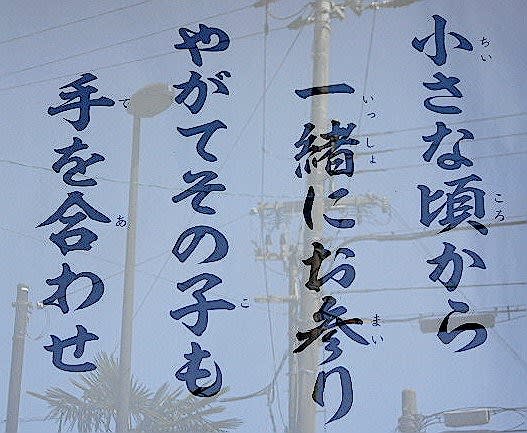 小さな頃から
一緒にお参り
やがてその子も
手を合わせ